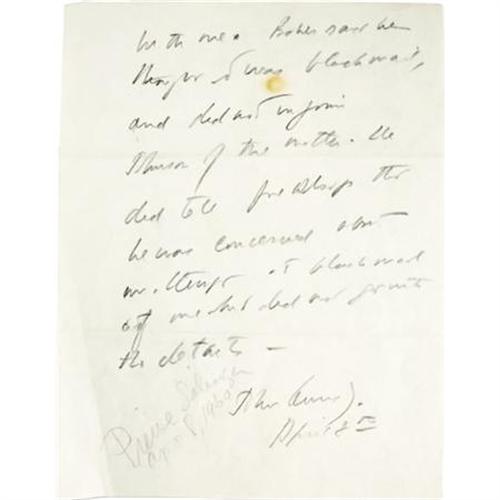 with me. Baker said he
thought it was blackmail,
and did not inform
Johnson of the matter. He
did tell that
he was concerned about
an attempt at blackmail
of me but did not give
the details —
John
April 8th
Pierre Salinger
April 8, 1960